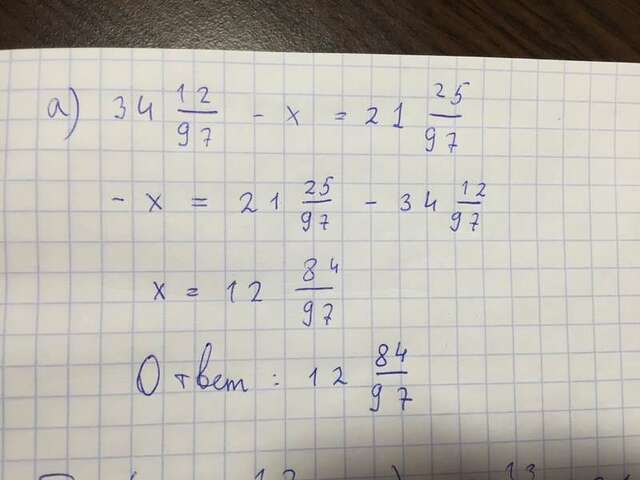 а) 34 12/97 - x = 21 25/97
- x = 21 25/97 - 34 12/97
x = 12 84/97
Ответ: 12 84/97